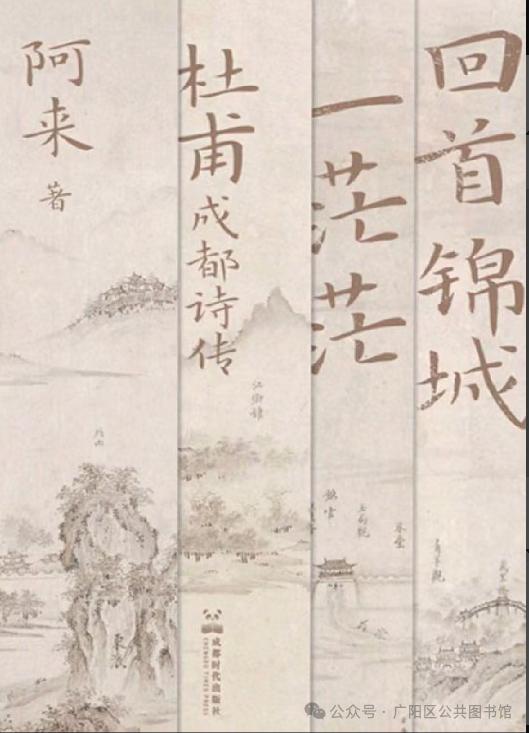 回首锦城
一茫茫
杜甫成都诗传
阿来 著
成都时代出版社
CHENGDU TIMES PRESS
公众号 · 广阳区公共图书馆